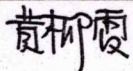 黄柳霞